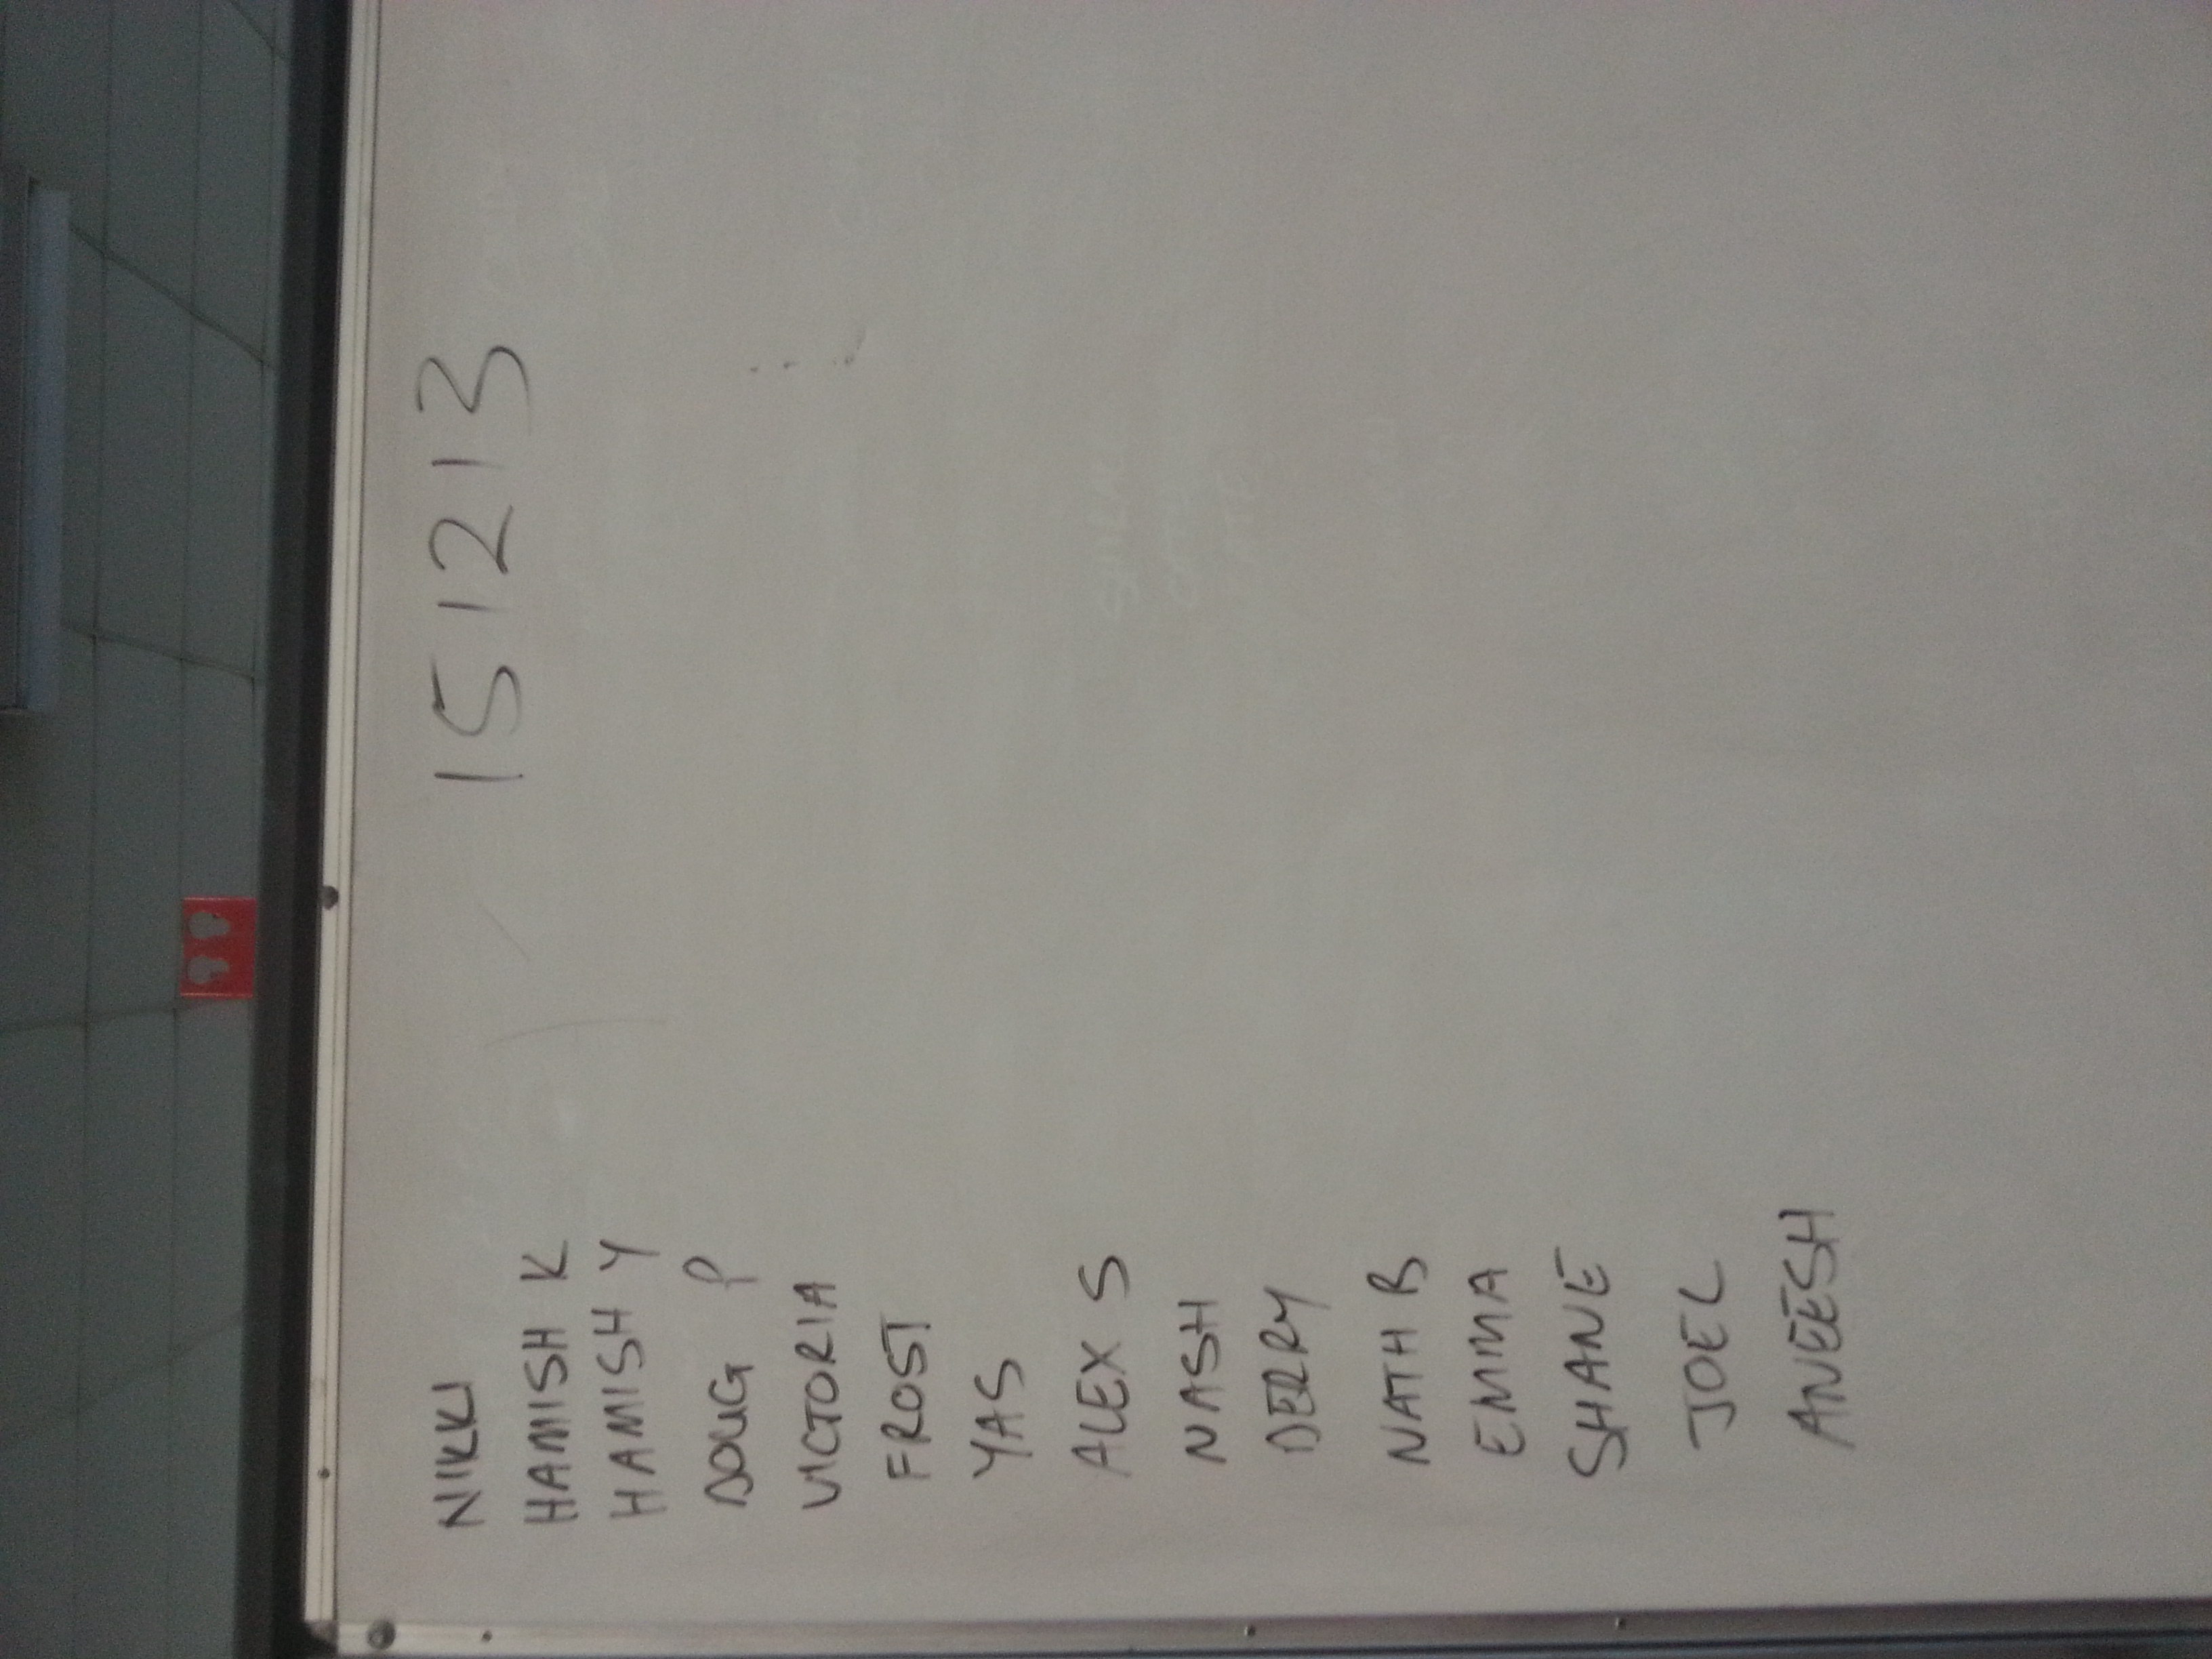 151213
NIKKI
HAMISH K
HAMISH Y
DOUG P
VICTORIA
FROST
YAS
ALEX S
NASH
DERRY
NATH B
EMMA
SHANE
JOEL
ANEESH